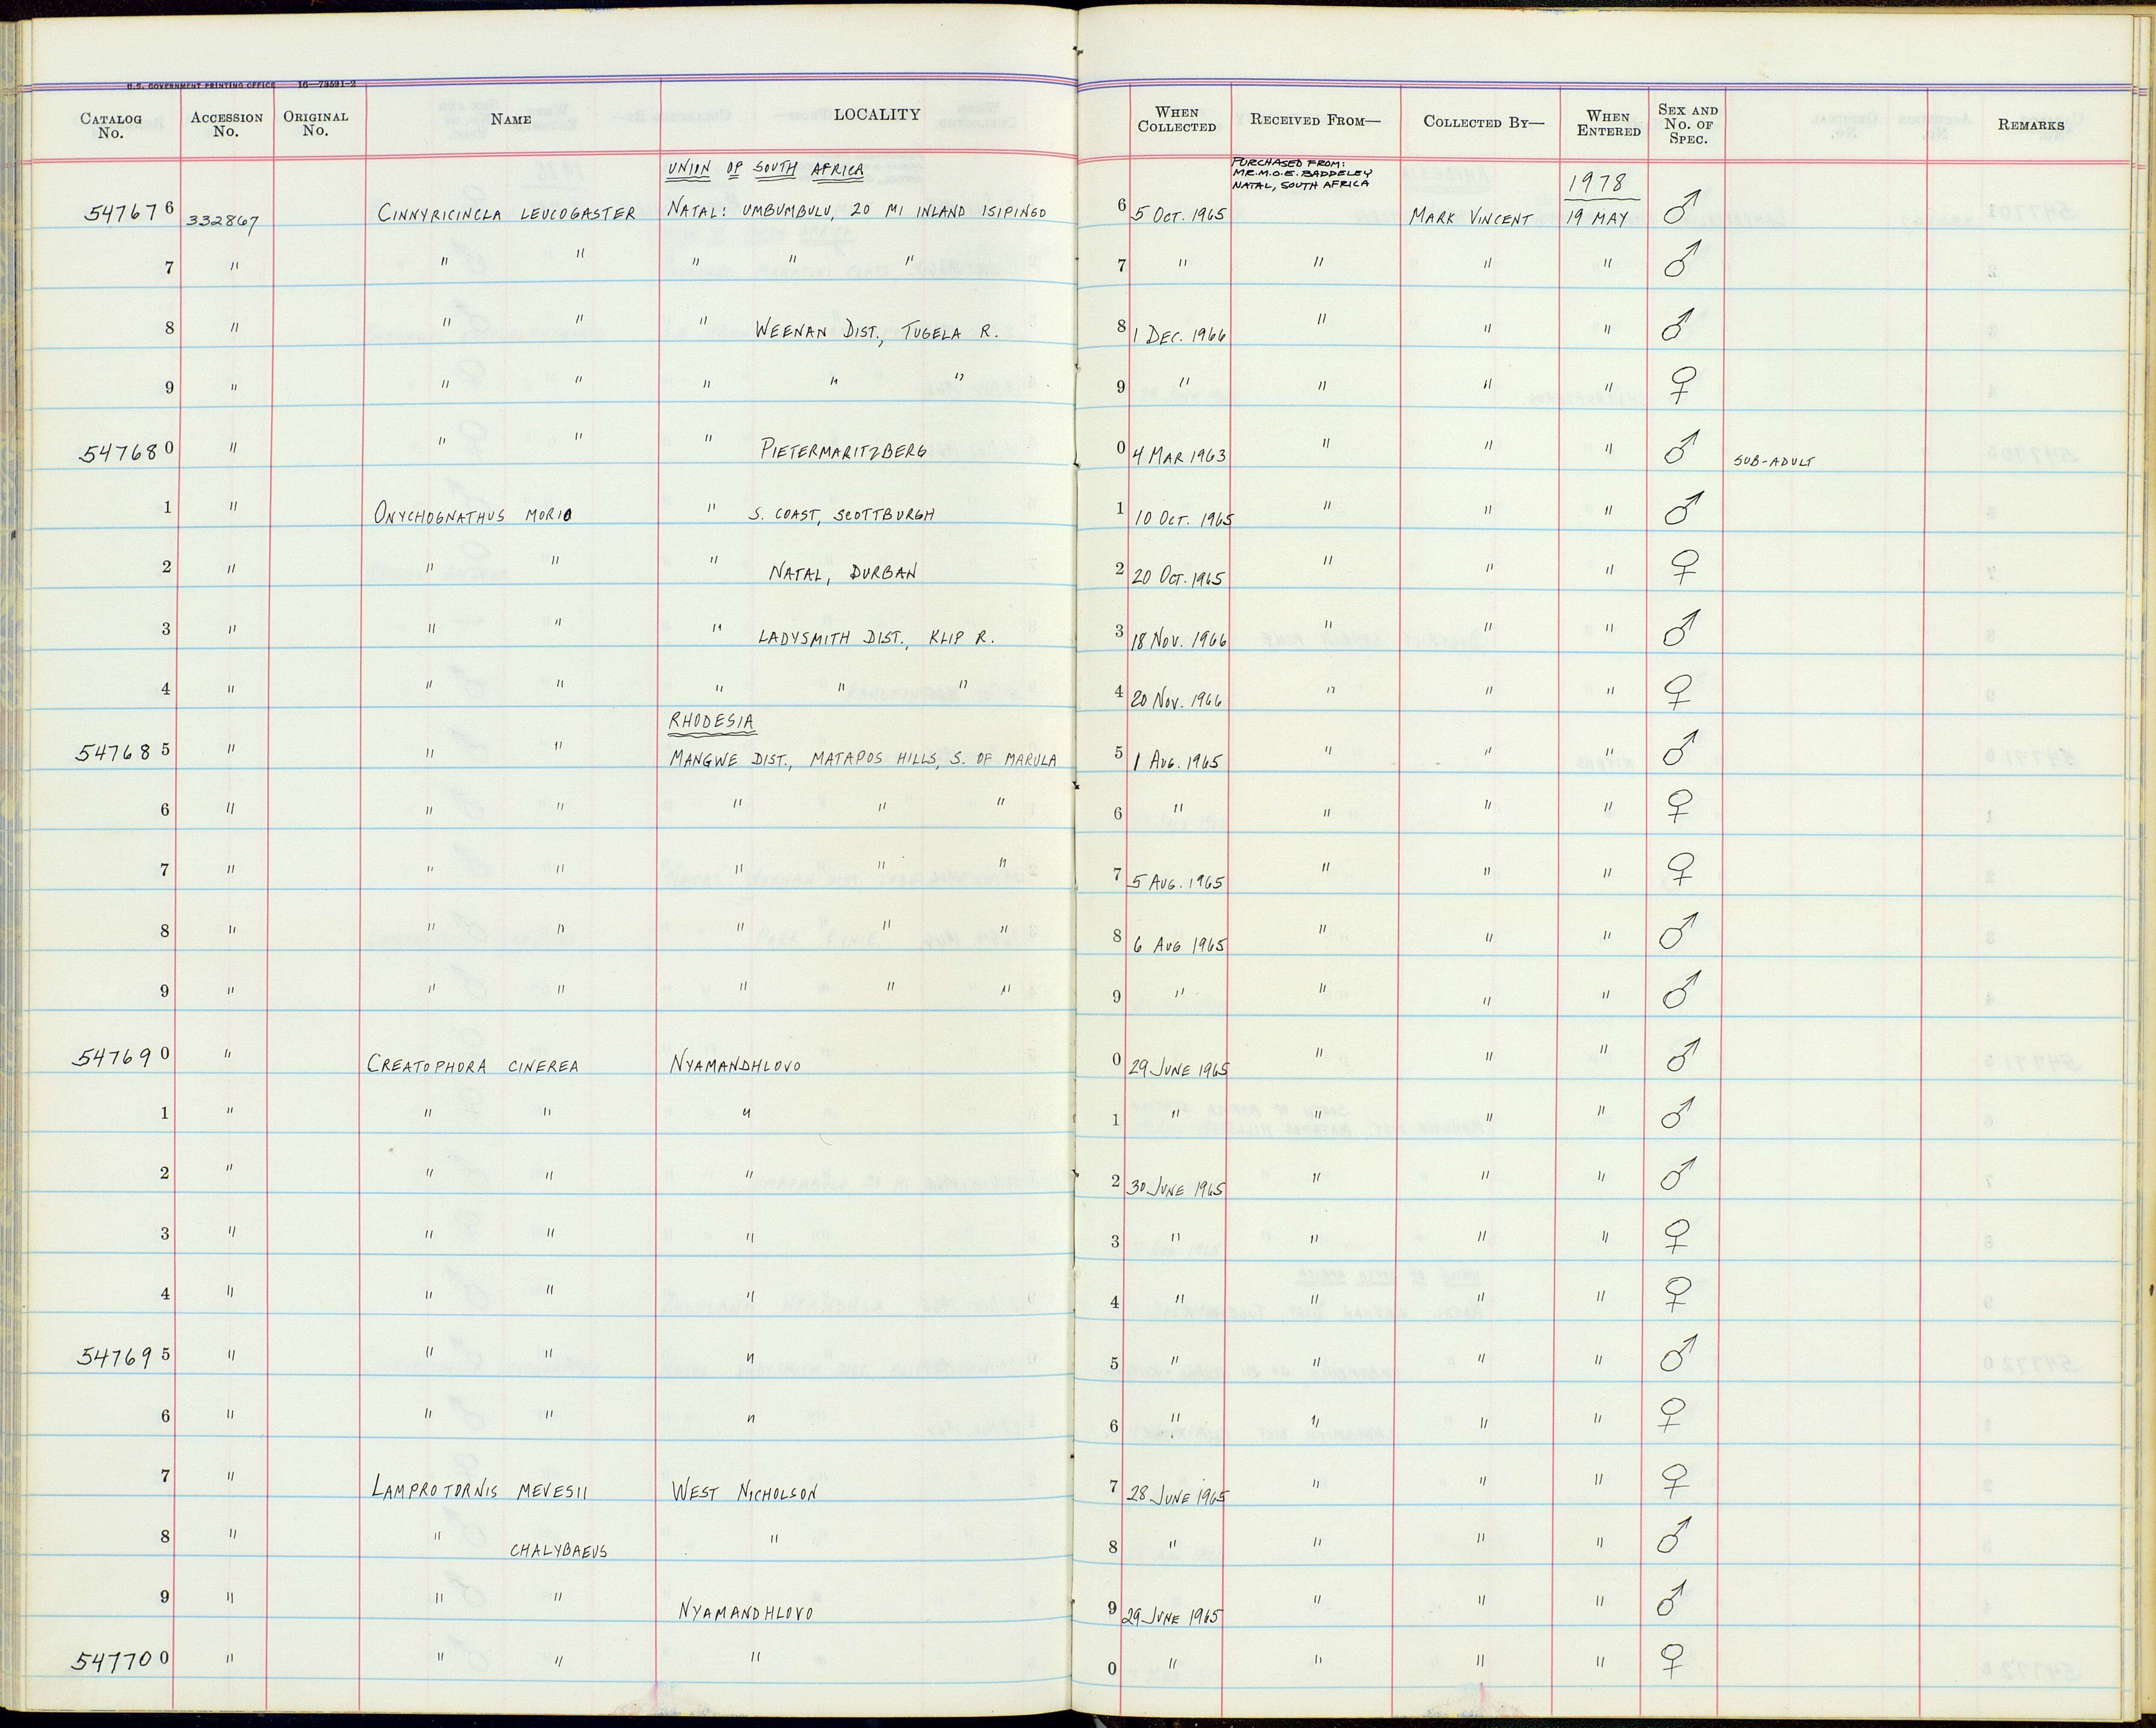 U.S. GOVERNMENT PRINTING OFFICE 16—73691-2
CATALOG No. ACCESSION No. ORIGINAL No. NAME LOCALITY WHEN COLLECTED RECEIVED FROM— COLLECTED BY— WHEN ENTERED SEX AND No. OF SPEC. REMARKS
UNION OF SOUTH AFRICA PURCHASED FROM: MR. M.O.E. BADDELEY NATAL, SOUTH AFRICA 1978
547676 332867 CINNYRICINCLA LEUCOGASTER NATAL: UMBUMBULU, 20 MI INLAND ISIPINGO 6 5 OCT. 1965 MARK VINCENT 19 MAY ♂
7 " " " " " " 7 " " " " ♂
8 " " " " WEENAN DIST., TUGELA R. 8 1 DEC. 1966 " " " ♂
9 " " " " " " 9 " " " " ♀
547680 " " " " PIETERMARITZBERG 0 4 MAR 1963 " " " ♂ SUB-ADULT
1 " ONYCHOGNATHUS MORIO " S. COAST, SCOTTBURGH 1 10 OCT. 1965 " " " ♂
2 " " " " NATAL, DURBAN 2 20 OCT. 1965 " " " ♀
3 " " " " LADYSMITH DIST., KLIP R. 3 18 NOV. 1966 " " " ♂
4 " " " " " " 4 20 NOV. 1966 " " " ♀
RHODESIA
547685 " " " MANGWE DIST., MATAPOS HILLS, S. OF MARULA 5 1 AUG. 1965 " " " ♂
6 " " " " " " 6 " " " " ♀
7 " " " " " " 7 5 AUG. 1965 " " " ♀
8 " " " " " " 8 6 AUG 1965 " " " ♂
9 " " " " " " 9 " " " " ♂
547690 " CREATOPHORA CINEREA NYAMANDHLOVO 0 29 JUNE 1965 " " " ♂
1 " " " " 1 " " " " ♂
2 " " " " 2 30 JUNE 1965 " " " ♂
3 " " " " 3 " " " " ♀
4 " " " " 4 " " " " ♀
547695 " " " " 5 " " " " ♂
6 " " " " 6 " " " " ♀
7 " LAMPROTORNIS MEVESII WEST NICHOLSON 7 28 JUNE 1965 " " " ♀
8 " " CHALYBAEUS " 8 " " " " ♂
9 " " " NYAMANDHLOVO 9 29 JUNE 1965 " " " ♂
547700 " " " " 0 " " " " ♀